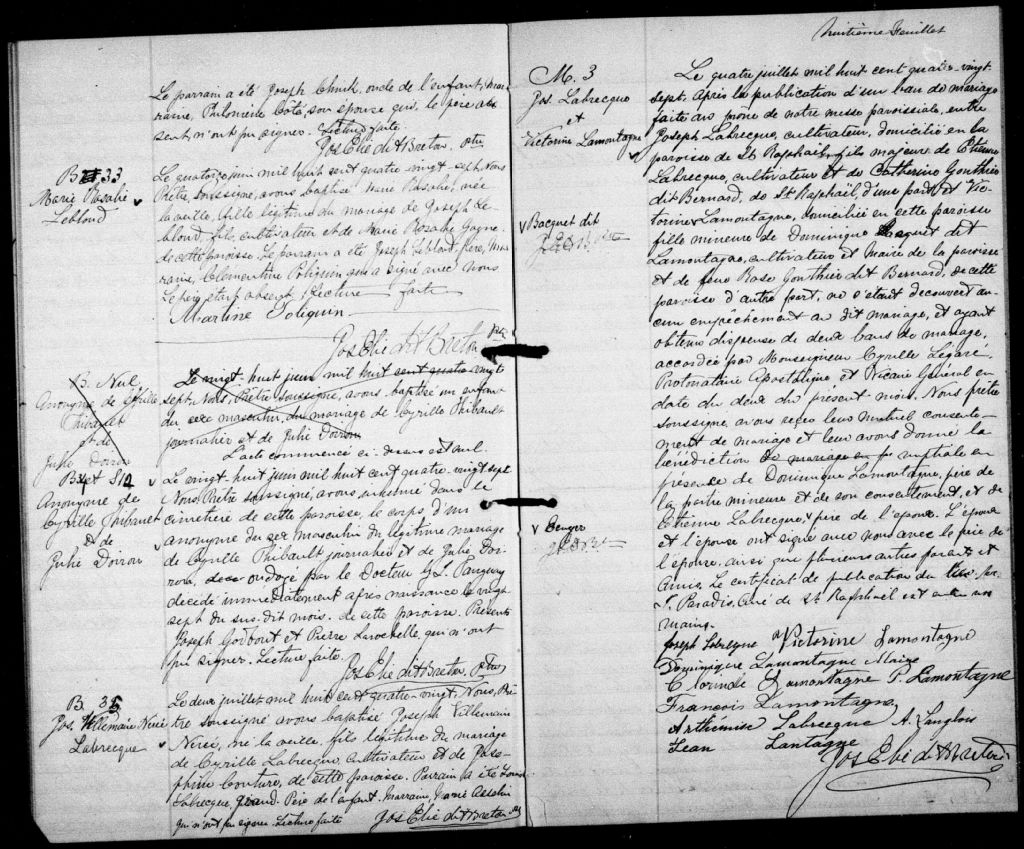 Le parrain a été Joseph oncle de l'enfant, mar-
raine, Philomène Côté, son épouse qui, le père ab-
sent n'ont pu signer. Lecture faite.
Jos Elie dit Breton, ptre
B 33
Marie Rosalie
Leblond
Le quatorze juin mil huit cent quatre vingt sept, Nous
Prêtre, soussigné, avons baptisé Marie Rosalie, née
la veille, fille légitime du mariage de Joseph Le-
blond, fils, cultivateur et de Marie Rosalie Gagné
de cette paroisse. Le parrain a été Joseph Leblond, père, mar-
raine, Clémentine Poliquin, a signé avec nous
Le père étant absent, Lecture faite
Martine Poliquin
Jos Elie dit Breton Ptre
B. Nul
Anonyme de Cyrille
Thibault
et de
Julie Doiron
Le vingt-huit juin mil huit cent quatre vingt
sept, Nous, Prêtre soussigné, avons baptisé un enfant
du sexe masculin, du mariage de Cyrille Thibault
journalier et de Julie Doiron
L'acte commencé ci-dessus est nul.
Anonyme de
Cyrille Thibault
et de
Julie Doiron
Le vingt-huit juin mil huit cent quatre-vingt sept
Nous, Prêtre soussigné, avons inhumé dans le
cimetière de cette paroisse, le corps d'un
anonyme du sexe masculin du légitime mariage
de Cyrille Thibault journalier et de Julie Doi-
ron, ondoyé par le Docteur
décédé immédiatement après naissance le vingt
sept du sus-dit mois, de cette paroisse. Présents
Joseph Godbout et Pierre Larochelle, qui n'ont
pu signer. Lecture faite.
Jos Elie dit Breton, ptre
B 35
Jos. Villemaire Nérée
Labrecque
Le deux juillet mil huit cent quatre-vingt. Nous, Prê-
tre soussigné avons baptisé Joseph Villemaire
Nérée, né la veille, fils légitime du mariage
de Cyrille Labrecque, cultivateur et de José-
phine Couture, de cette paroisse. Parrain a été
Labrecque, grand-Père de l'enfant. Marraine, Marie
qui n'ont pu signer. Lecture faite
Jos Elie dit Breton ptre
huitième Feuillet
M. 3
Jos Labrecque
et
Victorine Lamontagne
Le quatre juillet mil huit cent quatre-vingt
sept. Après la publication d'un ban de mariage
faite au prône de notre messe paroissiale, entre
Joseph Labrecque, cultivateur, domicilié en la
paroisse de St Raphaël, fils majeur de Etienne
Labrecque, cultivateur et de Catherine Gouthier
dit Bernard, de St Raphaël, d'une part, et Vic-
torine Lamontagne, domiciliée en cette paroisse
fille mineure de Dominique Bacquet dit
Lamontagne, cultivateur et Maire de la paroisse
et de feue Rose Gouthier dit Bernard, de cette
paroisse d'autre part, ne s'étant découvert au-
cun empêchement au dit mariage, et ayant
obtenu dispense de deux bans de mariage,
accordée par Monseigneur Cyrille Légaré,
Protonotaire Apostolique et Vicaire Général en
date du deux du présent mois. Nous prêtre
soussigné, avons reçu leur mutuel consente-
ment de mariage et leur avons donné la
bénédiction nuptiale en
présence de Dominique Lamontagne, père de
la partie mineure et de son consentement, et de
Etienne Labrecque, père de l'époux. L'époux
et l'épouse ont signé avec nous avec le père de
l'épouse ainsi que plusieurs autres parents et
Amis. Le certificat de publication du
Paradis, curé de St Raphael est entre nos
mains.
Bacquet dit
Joseph Labrecque Victorine Lamontagne
Dominique Lamontagne Maire
Clorinde Lamontagne P. Lamontagne
François Lamontagne
Arthémise Labrecque A. Langlois
Jean Lantagne
Jos Elie dit Breton